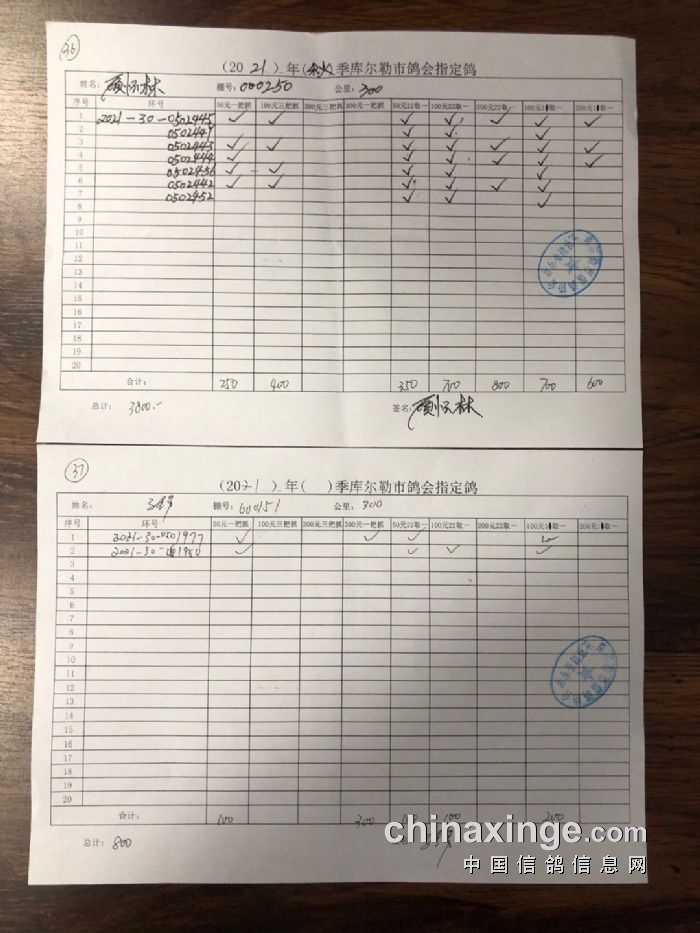 36
(2021)年(秋)季库尔勒市鸽会指定鸽
姓名: 棚号:000250 公里:300
序号 环号 50元一把抓 100元三把抓 200元三把抓 300元一把抓 50元22取一 100元22取一 200元22取一 100元1 取一 200元1 取一
1 2021-30-0502445 ✓ ✓ ✓ ✓ ✓ ✓ ✓
2 0502441 ✓ ✓ ✓
3 0502443 ✓ ✓ ✓ ✓ ✓ ✓ ✓
4 0502444 ✓ ✓ ✓ ✓ ✓ ✓
5 0502456 ✓ ✓ ✓ ✓ ✓
6 0502442 ✓ ✓ ✓ ✓ ✓ ✓
7 0502452 ✓ ✓ ✓
8
9
10
11
12
13
14
15
16
17
18
19
20
合计: 250 400 350 700 800 700 600
总计: 3800.- 签名:
37
(2021)年( )季库尔勒市鸽会指定鸽
姓名: 棚号:600151 公里:300
序号 环号 50元一把抓 100元三把抓 200元三把抓 300元一把抓 50元22取一 100元22取一 200元22取一 100元1 取一 200元1 取一
1 2021-30-0501977 ✓ ✓ ✓ ✓
2 2021-30- 1950 ✓ ✓ ✓ ✓
3
4
5
6
7
8
9
10
11
12
13
14
15
16
17
18
19
20
合计: 100 300 100 200
总计: 800
chinaxinge.com
中国信鸽信息网